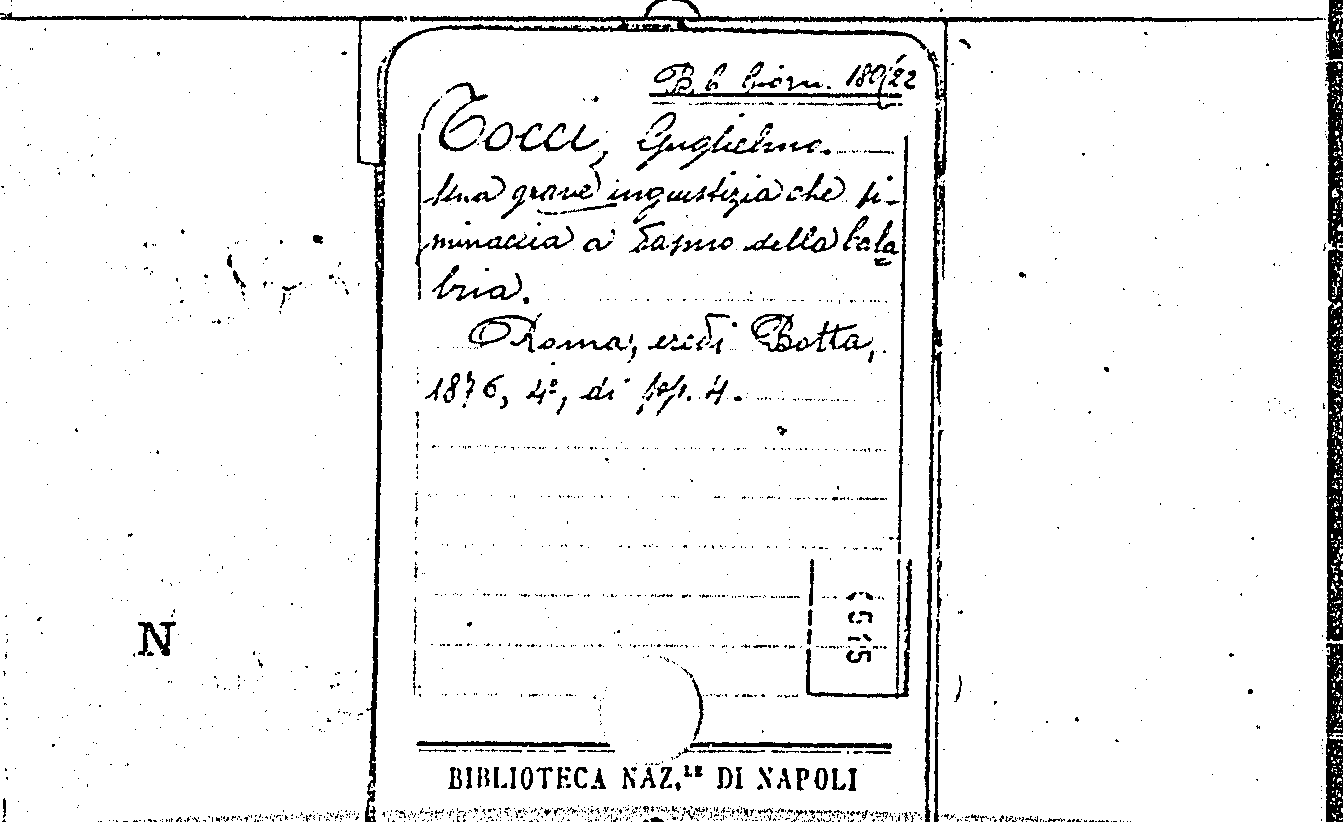 B. b. Giorn. 180/22
Tocci, Guglielmo.
Una grave ingiustizia che si
minaccia a danno della Cala
bria.
Roma, eredi Botta,
1876, 4°, di pp. 4.
N
6515
BIBLIOTECA NAZ.LE DI NAPOLI